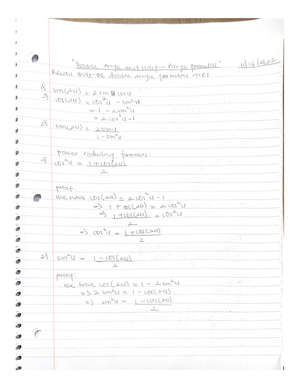 "Double Angle and Half-Angle formulas" 11/04/2022
Recall that the double angle formulas are:
1) sin(2u) = 2 sin u cos u
2) cos(2u) = cos²u - sin²u
= 1 - 2sin²u
= 2cos²u - 1
3) tan(2u) = 2tanu / 1-tan²u
power reducing formulas:
1) cos²u = 1+cos(2u) / 2
proof:
we have cos(2u) = 2cos²u - 1
=> 1 + cos(2u) = 2cos²u
=> 1+cos(2u) / 2 = cos²u
=> cos²u = 1+cos(2u) / 2
2) sin²u = 1-cos(2u) / 2
proof:
we have cos(2u) = 1 - 2sin²u
=> 2 sin²u = 1 - cos(2u)
=> sin²u = 1-cos(2u) / 2